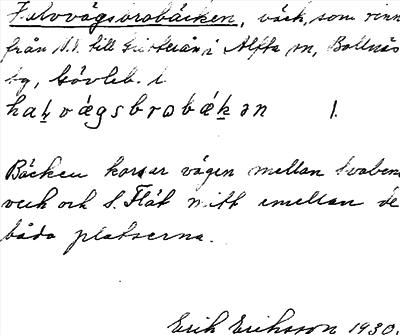 Halvvägsbrobäcken, bäck, som rinn
från N.V. till i Alfta sn, Bollnäs
tg, Gävleb. l.
halvägsbrobäkən 1.
Bäcken korsar vägen mellan Svaben-
verk och S. Flät mitt emellan de
båda platserna.
Erik Eriksson 1930.